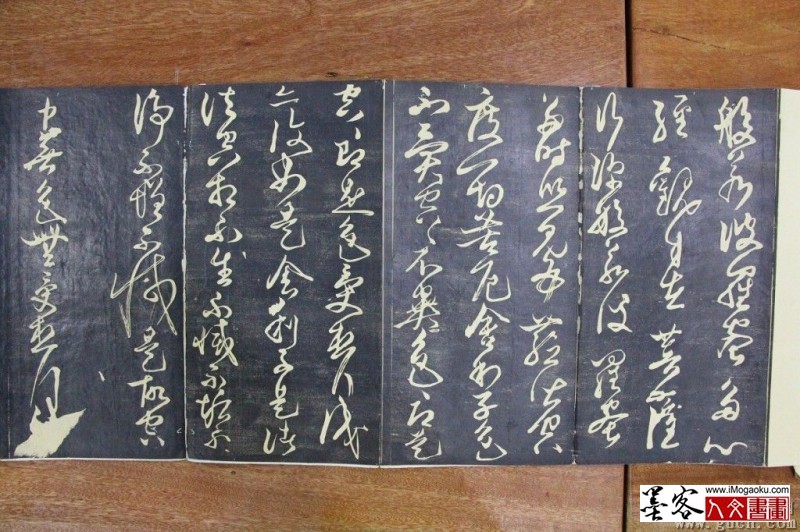 般若波羅蜜多心
經觀自在菩薩
行深般若波羅蜜
多時照見五蘊皆空
度一切苦厄舍利子色
不異空空不異色色即是
空空即是色受想行識
亦復如是舍利子是諸
法空相不生不滅不垢不
淨不增不減是故空
中無色無受想行
墨客 www.iMogaoku.com
人文書畫